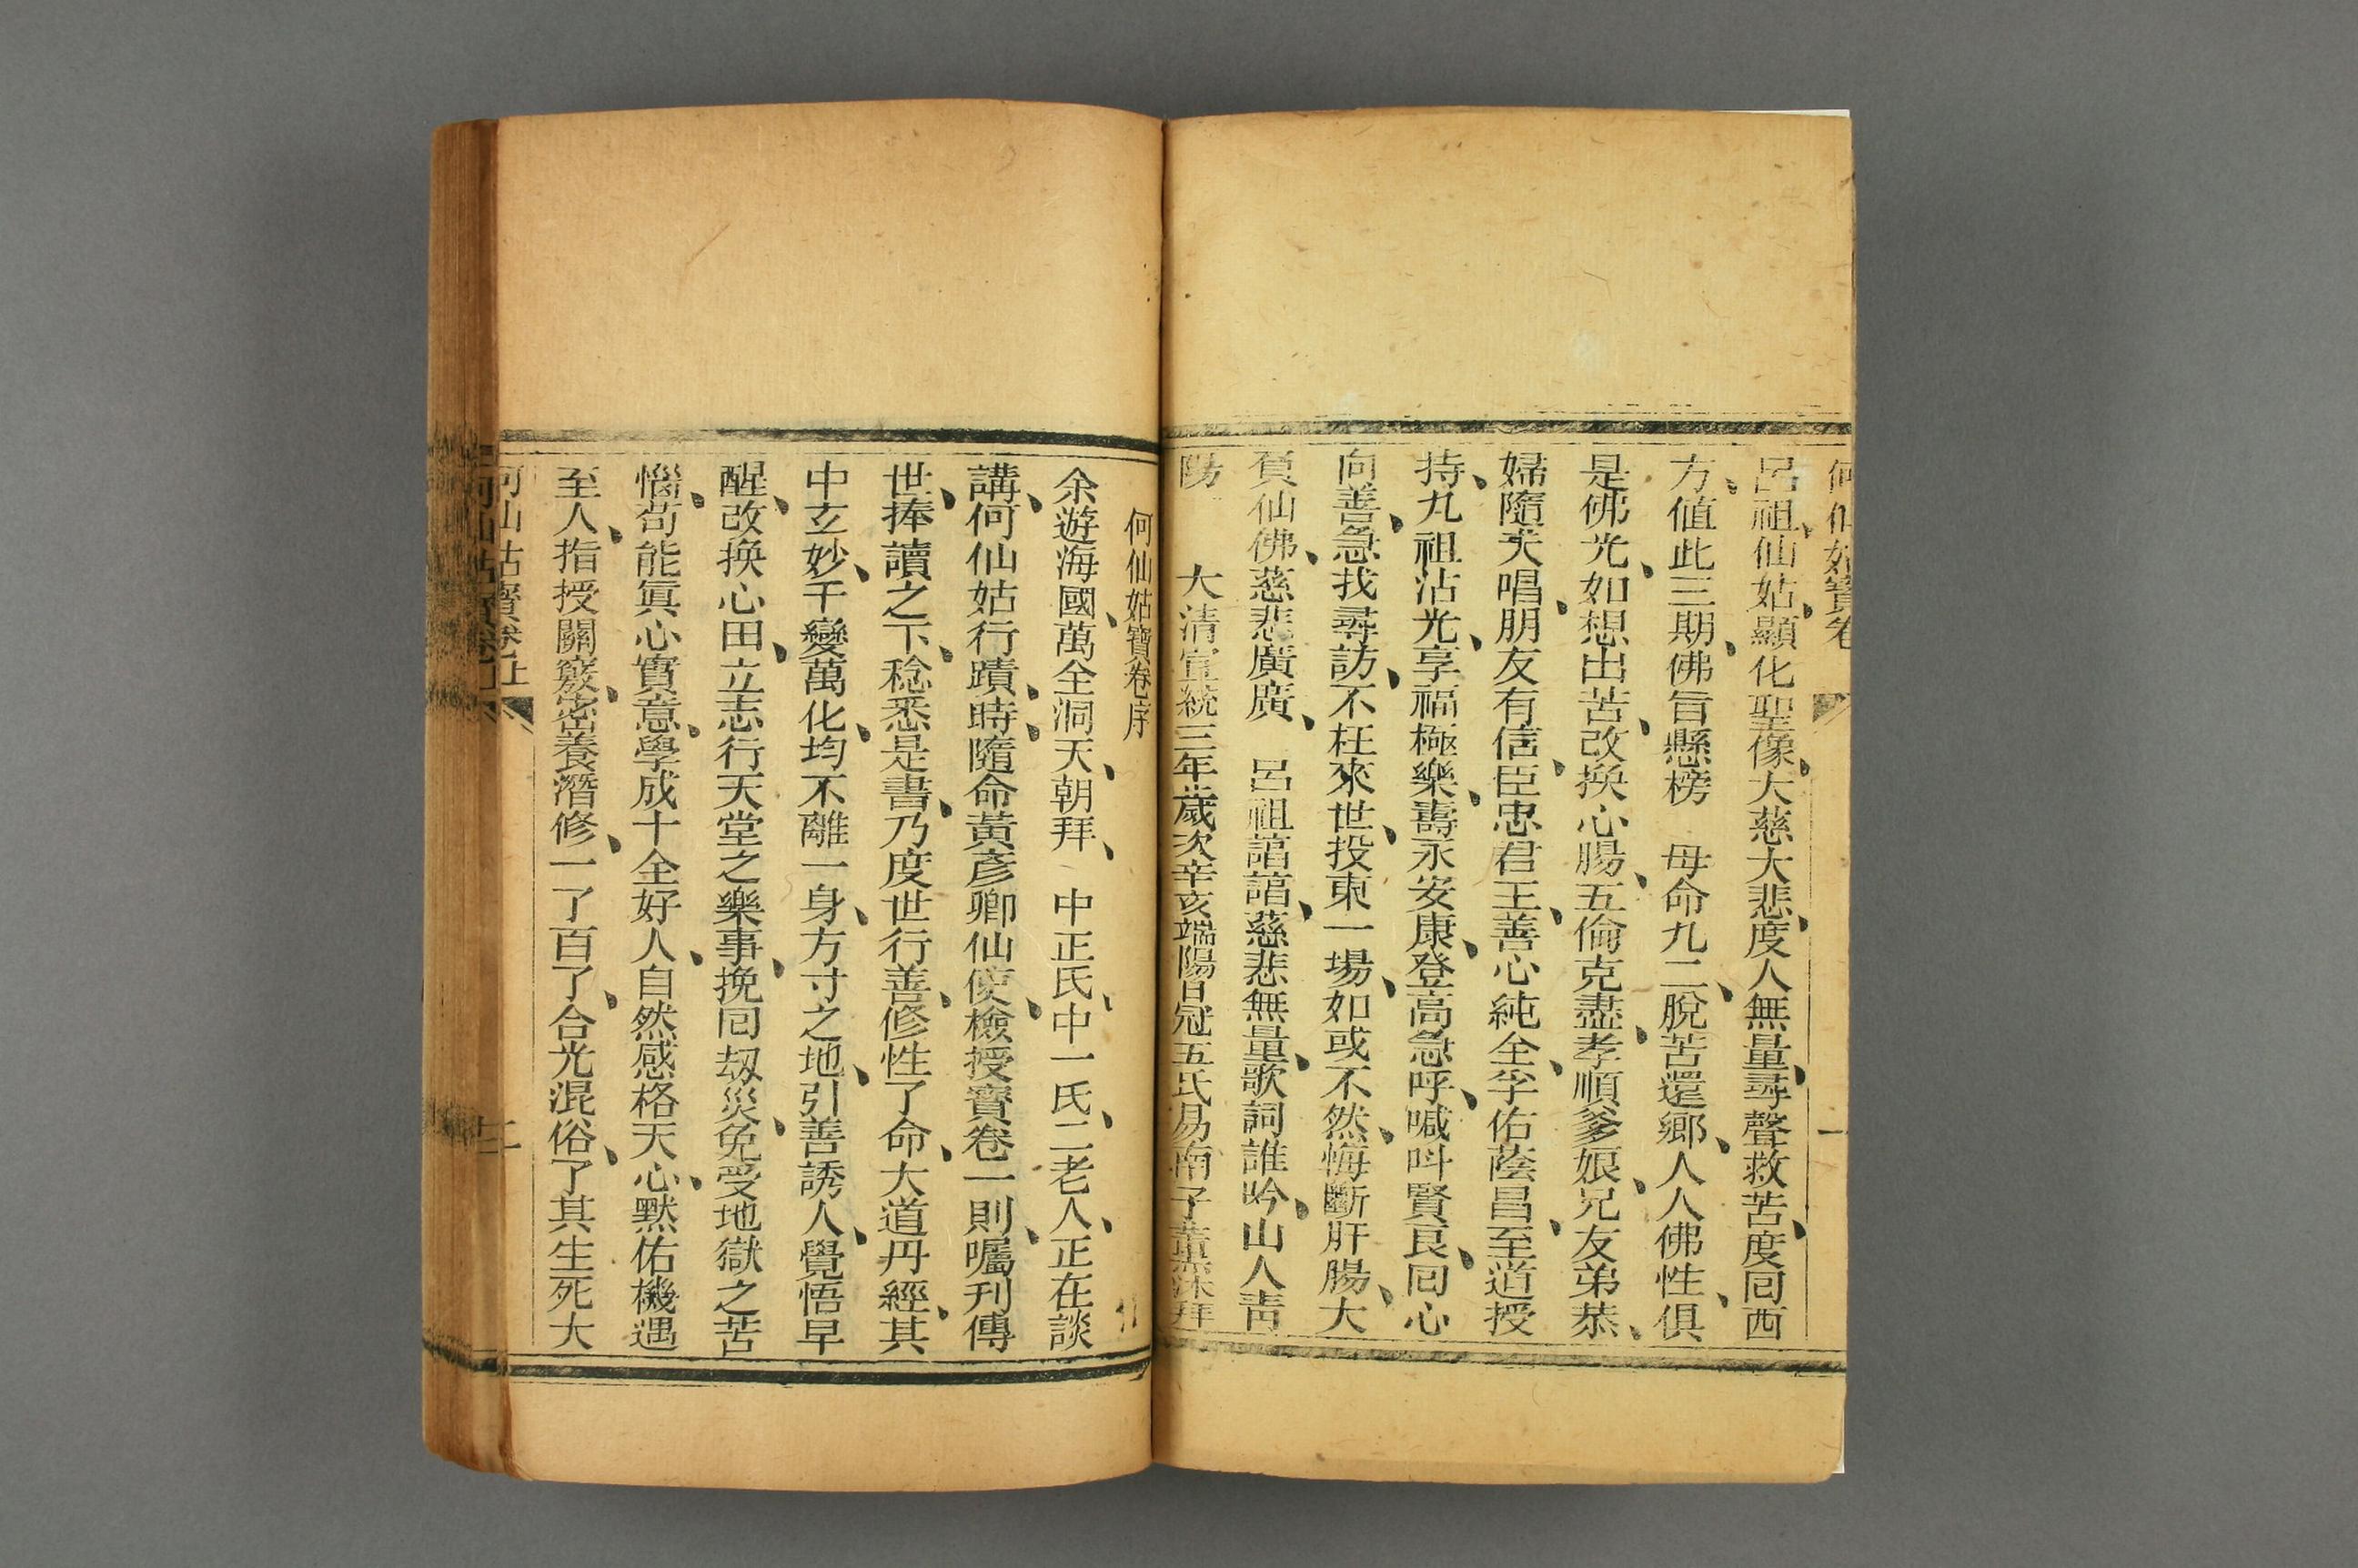 何仙姑寶卷
一
呂祖仙姑顯化聖像大慈大悲度人無量尋聲救苦度囘西
方值此三期佛旨懸榜　母命九二脫苦還鄉人人佛性俱
是佛光如想出苦改換心腸五倫克盡孝順爹娘兄友弟恭
婦隨夫唱朋友有信臣忠君王善心純全孛佑蔭昌至道授
持九祖沾光享福極樂壽永安康登高急呼喊呌賢良囘心
向善急找尋訪不枉來世投東一場如或不然悔斷肝腸大
負仙佛慈悲廣廣　呂祖諳諳慈悲無量歌詞誰吟山人靑
陽　大清宣統三年歲次辛亥端陽日冠五氏易南子黃 拜
何仙姑寶卷序
余遊海國萬全洞天朝拜　中正氏中一氏二老人正在談
講何仙姑行蹟時隨命黃彥卿仙使檢授寶卷一則囑刊傳
世捧讀之下稔悉是書乃度世行善修性了命大道丹經其
中玄妙千變萬化均不離一身方寸之地引善誘人覺悟早
醒改换心田立志行天堂之樂事挽囘刼災免受地獄之苦
惱苟能眞心實意學成十全好人自然感格天心默佑機遇
至人指授關竅密養潛修一了百了合光混俗了其生死大
何仙姑寶卷上
二